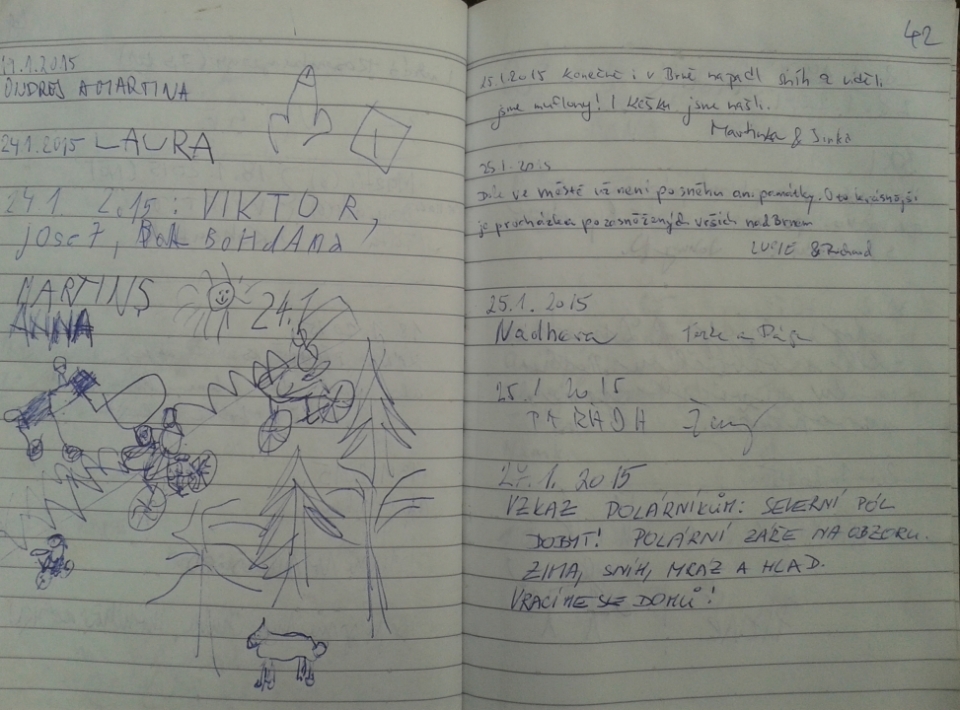 19.1.2015
ONDREJ A MARTINA
24.1.2015 LAURA
24.1. 2.15: VIKTOR,
JOSEF, BOHDANA
MARTINS 24.1
ANNA
42
25.1.2015 Konečně i v Brně napadl sníh a viděli
jsme muflony! I kešku jsme našli.
Martinka &
25.1.2015
ve městě už není po sněhu ani památky. O to krásnější
je procházka po zasněžených vrších nad Brnem
LUCIE & Richard
25.1.2015
Nadhera
25.1 2015
27.1.2015
VZKAZ POLÁRNÍKŮM: SEVERNÍ PÓL
DOBYT! POLÁRNÍ ZÁŘE NA OBZORU.
ZIMA, SNÍH, MRÁZ A HLAD.
VRACÍME SE DOMŮ!